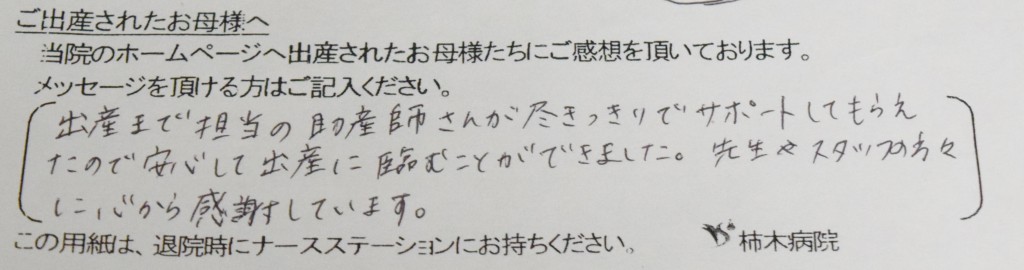 ご出産されたお母様へ
当院のホームページへ出産されたお母様たちにご感想を頂いております。
メッセージを頂ける方はご記入ください。
出産まで担当の助産師さんが尽きっきりでサポートしてもらえ
たので安心して出産に臨むことができました。先生やスタッフの方々
に心から感謝しています。
この用紙は、退院時にナースステーションにお持ちください。
柿木病院